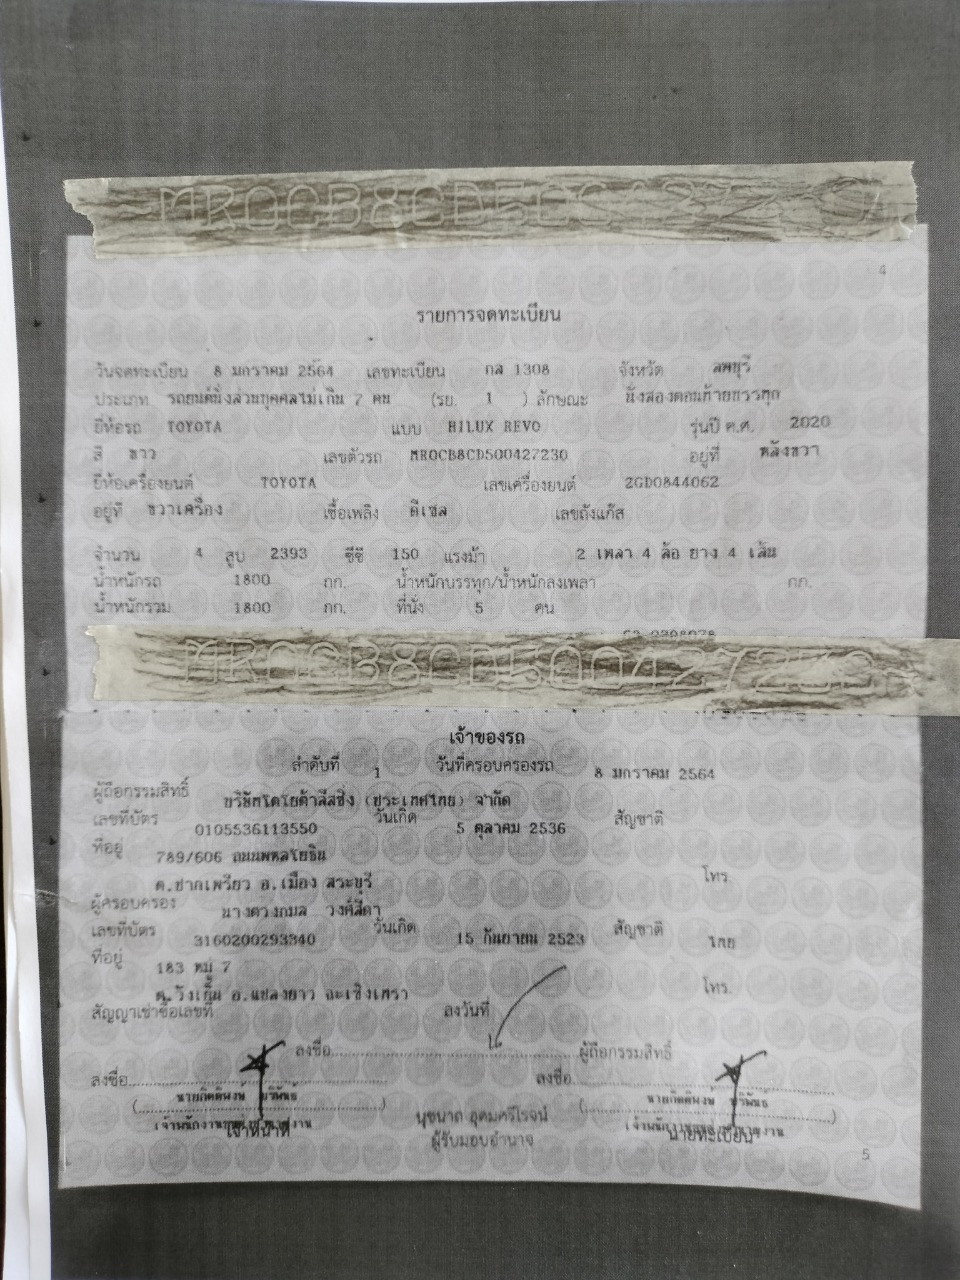 4
รายการจดทะเบียน
วันจดทะเบียน 8 มกราคม 2564 เลขทะเบียน กล 1308 จังหวัด ลพบุรี
ประเภท รถยนต์นั่งส่วนบุคคลไม่เกิน 7 คน (รย. 1 ) ลักษณะ นั่งสองตอนท้ายบรรทุก
ยี่ห้อรถ TOYOTA แบบ HILUX REVO รุ่นปี ค.ศ. 2020
สี ขาว เลขตัวรถ MR0CB8CD500427230 อยู่ที่ หลังขวา
ยี่ห้อเครื่องยนต์ TOYOTA เลขเครื่องยนต์ 2GD0844062
อยู่ที่ ขวาเครื่อง เชื้อเพลิง ดีเซล เลขถังแก๊ส
จำนวน 4 สูบ 2393 ซีซี 150 แรงม้า 2 เพลา 4 ล้อ ยาง 4 เส้น
น้ำหนักรถ 1800 กก. น้ำหนักบรรทุก/น้ำหนักลงเพลา กก.
น้ำหนักรวม 1800 กก. ที่นั่ง 5 คน
MR0CB8CD500427230
เจ้าของรถ
ลำดับที่ 1 วันที่ครอบครองรถ 8 มกราคม 2564
ผู้ถือกรรมสิทธิ์ บริษัทโตโยต้าลีสซิ่ง (ประเทศไทย) จำกัด
เลขที่บัตร 0105536113550 วันเกิด 5 ตุลาคม 2536 สัญชาติ
ที่อยู่ 789/606 ถนนพหลโยธิน
ต.ปากเพรียว อ.เมือง สระบุรี โทร
ผู้ครอบครอง นางดวงกมล วงค์สีดา
เลขที่บัตร 3160200293340 วันเกิด 15 กันยายน 2523 สัญชาติ ไทย
ที่อยู่ 183 หมู่ 7
ต.วังเย็น อ.แปลงยาว ฉะเชิงเทรา โทร.
สัญญาเช่าซื้อเลขที่ ลงวันที่
ลงชื่อ ผู้ถือกรรมสิทธิ์
ลงชื่อ ลงชื่อ
( ) นุชนาถ อุดมศรีไรจน์ ( )
เจ้าหน้าที่ ผู้รับมอบอำนาจ นายทะเบียน
5